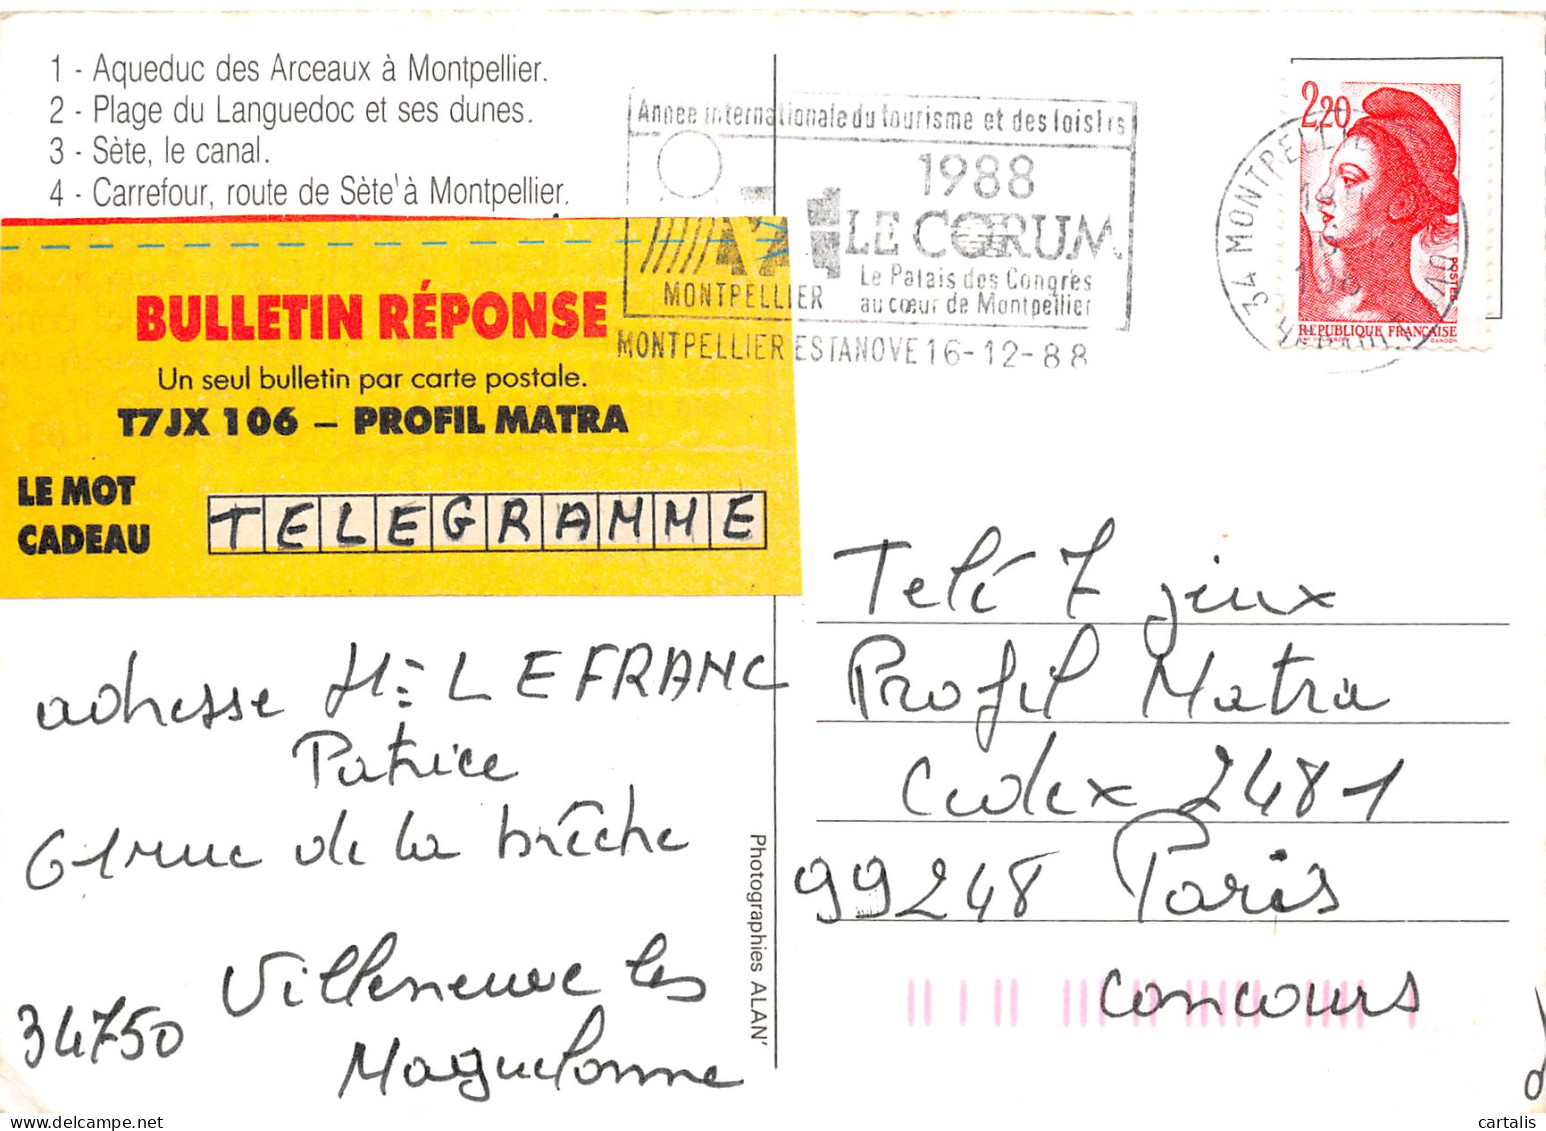 1 - Aqueduc des Arceaux à Montpellier.
2 - Plage du Languedoc et ses dunes.
3 - Sète, le canal.
4 - Carrefour, route de Sète à Montpellier.
Année internationale du tourisme et des loisirs
1988
LE CORUM
Le Palais des Congrès
au cœur de Montpellier
MONTPELLIER
MONTPELLIER ESTANOVE 16-12-88
2,20
34 MONTPELLIER
POSTES
REPUBLIQUE FRANÇAISE
GANDON
BULLETIN RÉPONSE
Un seul bulletin par carte postale.
T7JX 106 – PROFIL MATRA
LE MOT
CADEAU
TELEGRAMME
adresse Mr LEFRANC
Patrice
61 rue de la brêche
Villeneuve les
34750
Maguelonne
Photographies ALAN'
Telé 7 jeux
Profil Matra
Cedex 2481
99248 Paris
Concours
cartalis
www.delcampe.net